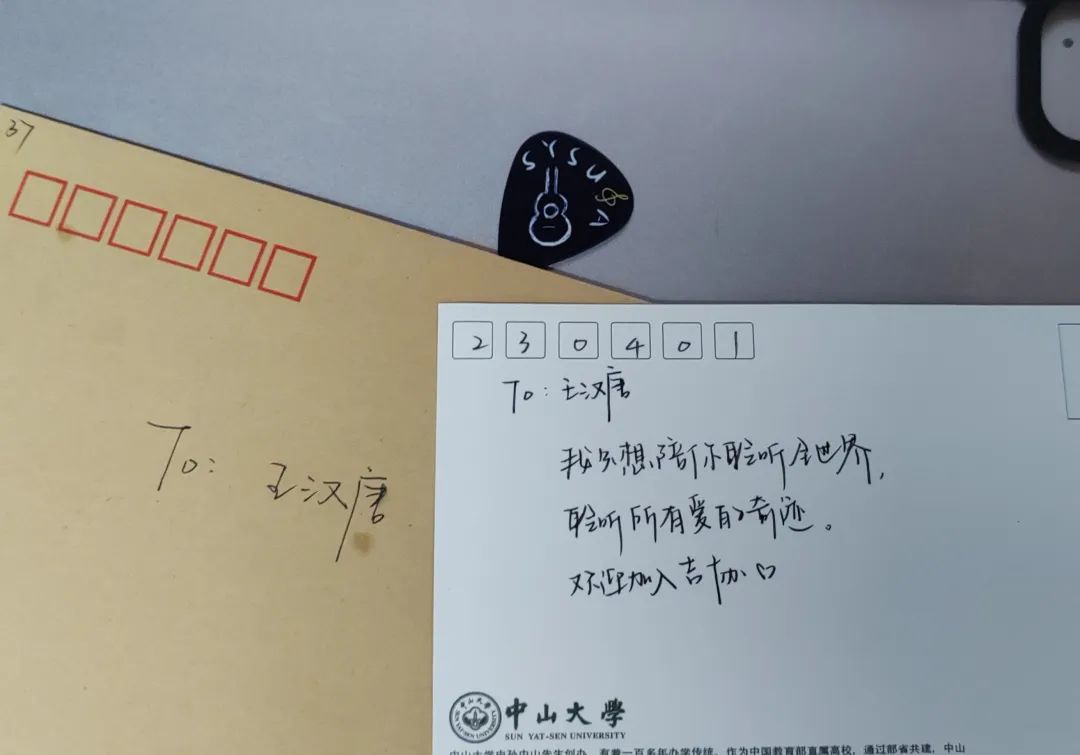 37
To: 王汉唐
SYSU&A
230401
To: 王汉唐
我只想陪你聆听全世界,
聆听所有爱的奇迹。
欢迎加入吉协
中山大学
中山大學
SUN YAT-SEN UNIVERSITY
中山大学由孙中山先生创办，有着一百多年办学传统。作为中国教育部直属高校，通过部省共建，中山